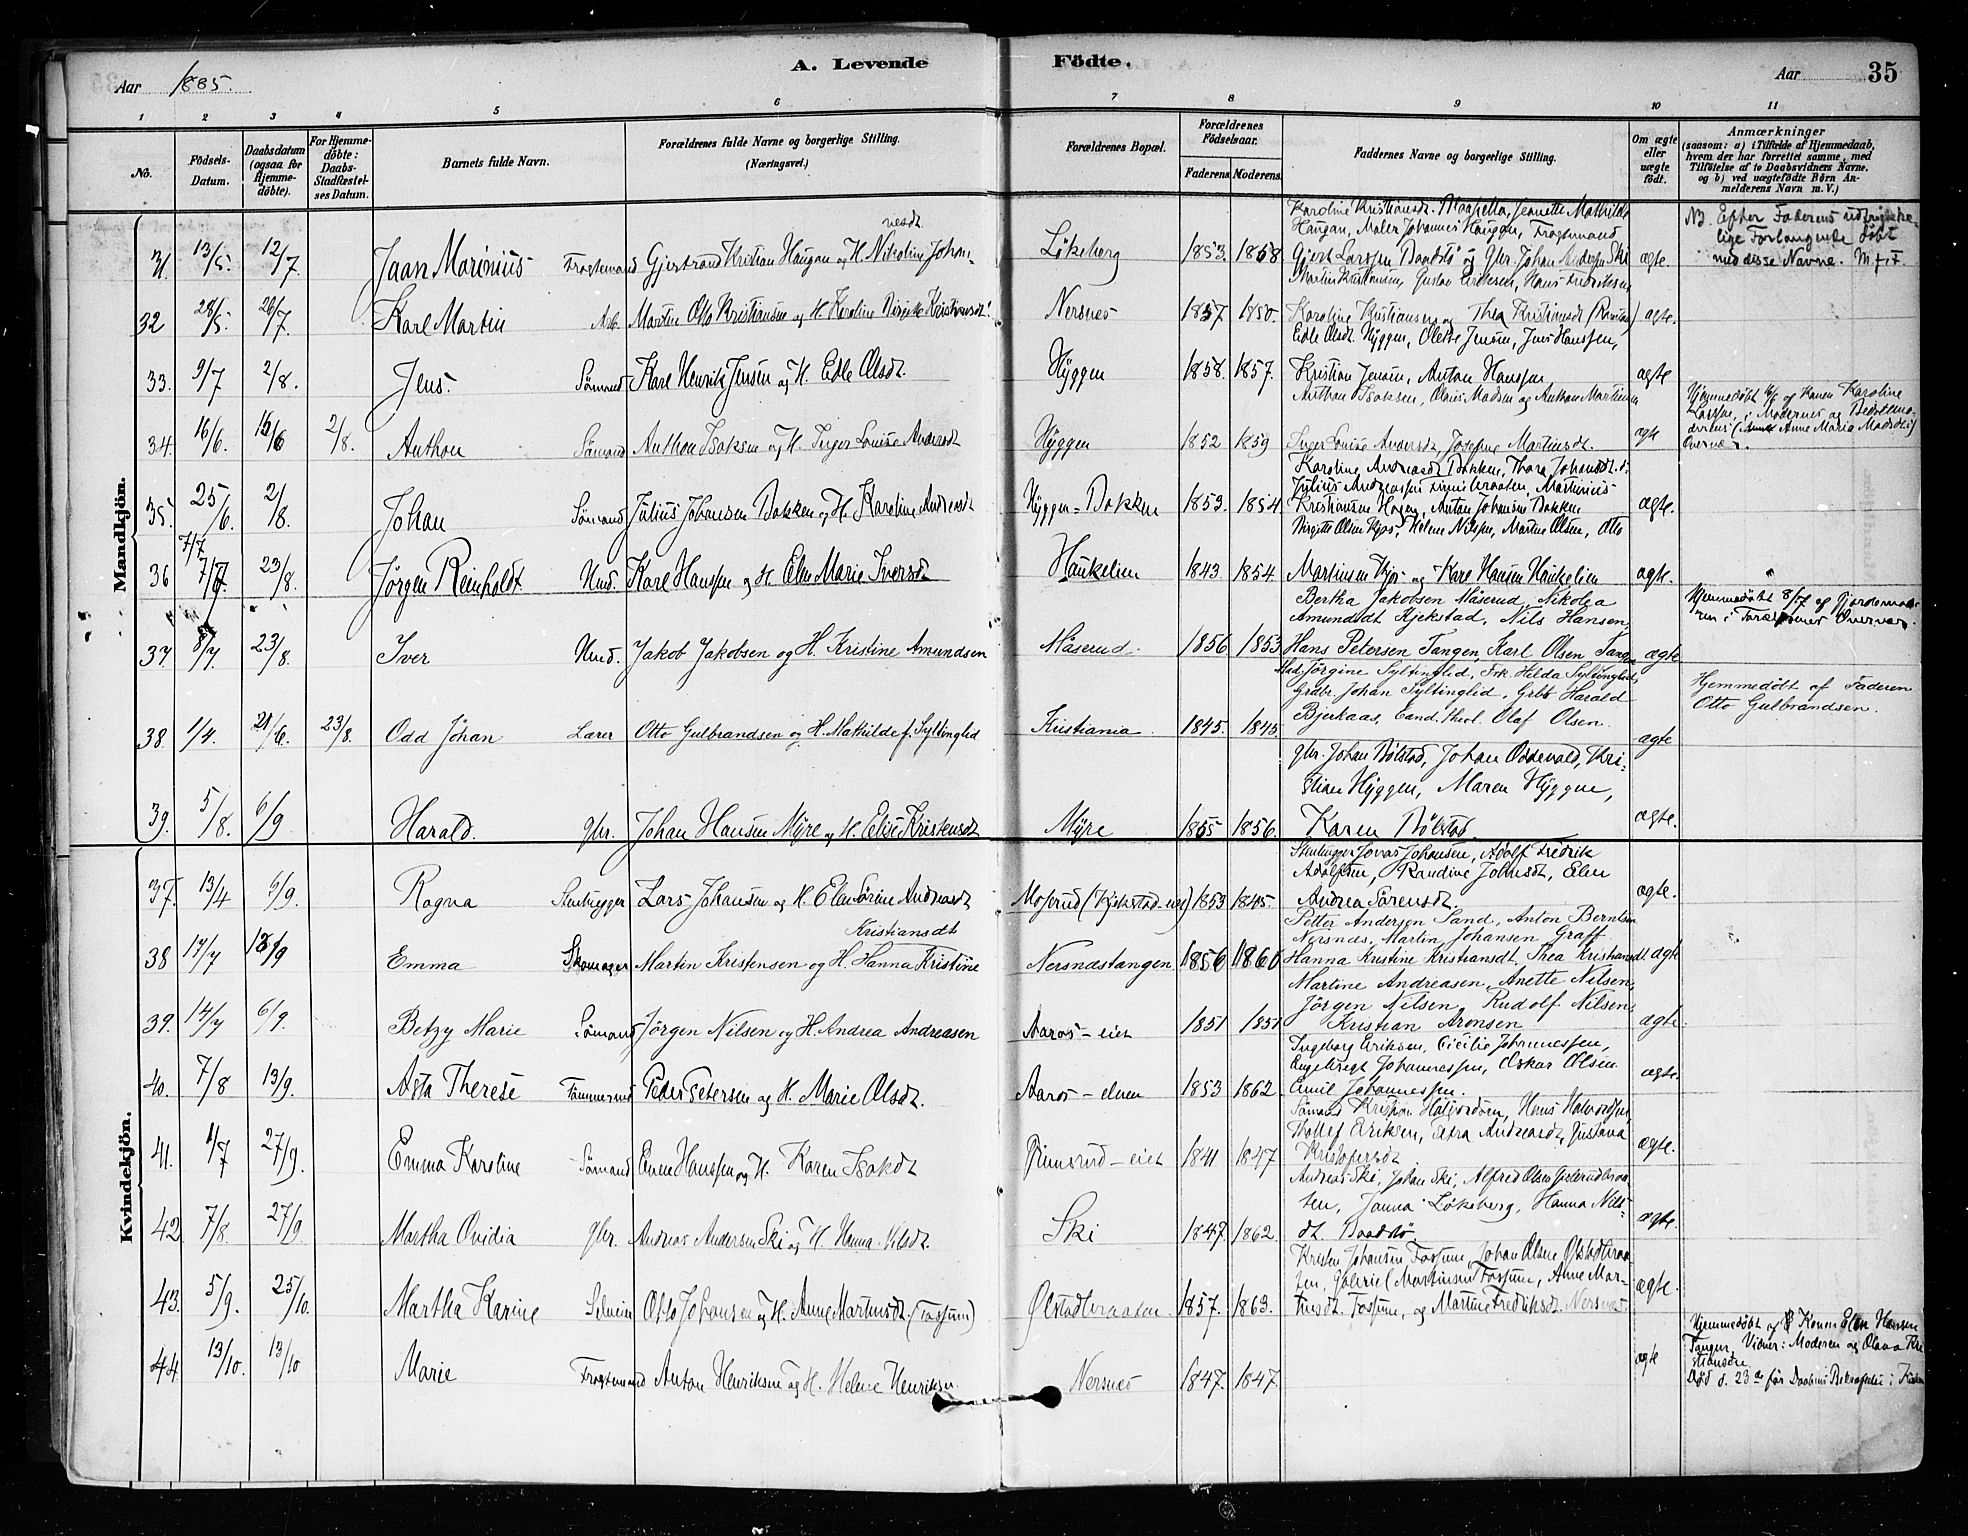 Aar 1885.
A. Levende Födte.
Aar 35
1 2 3 4 5 6 7 8 9 10 11
No.
Födsels-Datum.
Daabsdatum (ogsaa for Hjemme-döbte).
For Hjemme-döbte: Daabs-Stadfæstelses Datum.
Barnets fulde Navn.
Forældrenes fulde Navne og borgerlige Stilling. (Næringsvei.)
Forældrenes Bopæl.
Forældrenes Födselsaar.
Faderens Moderens
Faddernes Navne og borgerlige Stilling.
Om ægte eller uægte födt.
Anmærkninger
(saasom: a) i Tilfælde af Hjemmedaab, hvem der har forrettet samme, med Tilföielse af to Daabsvidners Navne. og b) ved uægtefödte Börn Anmelderens Navn m. V.)
Mandkjön.
31. 13/5. 12/7. Jaan Marinius Fragtemand Gjertrand Kristian Haugan og H. Nikoline Johannesdt Lökeberg 1853. 1858.
Haugan, Maler Johannes Haugan, Fragtemand
Gjert Larssen Baadstö og Gbr. Johan Ski ægte.
NB Efter Faderens udtrykke-
lige Forlangende döbt
med disse Navne.
32 28/5. 26/7. Karl Martin Arb. Martin Otto Kristiansen og H. Karoline Kristiansdt. Nersnes 1857 1850.
Karoline Kristiansen og Thea Kristiansdt ægte.
33. 9/7 2/8. Jens. Sömand Karl Henrik Jensen og H. Edle Olsdt. Hyggen 1858. 1857.
Edle Olsdt. Hyggen, Olette Jensen, Jens Hanssen,
Kristian Jensen, Anton Hanssen ægte
34. 16/6. 2/8. Anthon Sömand Anthon Isaksen og H. Inger Louise Andersdt Hyggen 1852 1859
Anthon Isaksen, Olaus Madsen og Anthon Martinsen
Inger Louise Andersdt, Josefine Martinsdt. ægte
Hjemmedöbt af Konen Karoline
35. 25/6. 2/8. Johan Sömand Julius Johansen Bakken og H. Karoline Andreasdt Hyggen-Bakken 1853. 1854.
Karoline Andreasdt Bakken, Thora Johansdt.
Kristiansen Hagen, Anton Johansen Bakken ægte.
36 7/7 23/8. Jörgen Reinholdt. Hmd. Karl Hanssen og H. Elen Marie Iversdt Haukelien 1843. 1854.
Birgitte Olsen Kjös, Helene Nilsen, Martin Olsen, Otto
Martinsen Kjös og Karl Hansen Haukelien ægte.
37 8/7. 23/8. Iver Hmd. Jakob Jakobsen og H. Kristine Amundsen Måserud 1856 1853
Bertha Jakobsen Måserud, Nikolea
Amundsdt Kjekstad, Nils Hansen,
Hans Petersen Tangen, Karl Olsen Tangen ægte
Hjemmedöbt 8/7 af Gjordemoderen
38. 1/4. 21/6. 23/8. Odd Johan Lærer Otto Gulbrandsen og H. Mathilde f. Syltinglid Kristiania 1845. 1845.
Jörgine Syltinglid, Frk. Hilda Syltinglid,
Grdbr. Johan Syltinglid, Grbr. Harald
Bjerkaas, Cand. theol. Olaf Olsen. ægte
Hjemmedöbt af Faderen
Otto Gulbrandsen.
39. 5/8. 6/9 Harald. gbr. Johan Hansen Myre og H. Elise Kristensdt Myre 1855 1856.
gbr. Johan Bölstad, Johan Oddevald, Kri-
stian Hyggen, Maren Hyggen,
Karen Bölstad. ægte.
Kvindekjön.
37. 13/4 6/9. Ragna Stenhugger Lars Johansen og H. Elen Sörine Andreasdt Moserud (Kjekstad-eie) 1853 1845.
Stenhugger Jonas Johansen, Adolf Fredrik
Adolfsen, Randine Johnsdt, Elen
Andrea Sörensdt. ægte.
38 17/7 13/9 Emma Skomager Martin Kristensen og H. Hanna Kristine Kristiansdt Nersnæstangen 1856 1860
Petter Andersen Sand, Anton Berntsen
Nersnæs, Martin Johansen Graff
Hanna Kristine Kristiansdt. Thea Kristiansdt. ægte
39. 14/7 6/9. Betzy Marie Sömand Jörgen Nilsen og H. Andrea Andreasen Aaros-eiet 1851 1851
Martine Andreasen, Anette Nilsen,
Jörgen Nilsen, Rudolf Nilsen,
Kristian Aronsen ægte.
40. 7/8 13/9. Asta Therese Tömmermd Peder Petersen og H. Marie Olsdt. Aaros-elven 1853 1862.
Ingeborg Eriksen, Cicilie Johannessen,
Engebregt Johannessen, Oskar Olsen
Emil Johannessen. ægte.
41. 1/7 27/9. Emma Karoline Sömand Even Hanssen og H. Karen Isakdt Grimsrud-eiet 1841 1847
Sömand Kristian Halvordsen, Hans Halvordsen,
Thollef Eriksen, Petra Andreasdt, Gustava
Kristofersdt. ægte.
42 7/8. 27/9 Martha Ovidia gbr. Andreas Andersen Ski og H. Hanna Nilsdt. Ski 1847. 1862
Andreas Ski, Johan Ski, Alfred Olsen
ten, Janna Lökeberg, Hanna Nils-
dt. Baadstö. ægte.
43. 5/9. 25/10. Martha Karine Otto Johansen og H. Anne Martinsdt. (Fossum) Ølstadbraaten. 1857. 1863.
Kristen Johansen Fossum, Johan Olsen Ølstadbraa-
ten, Gabriel Martinsen Fossum, Anne Mar-
tinsdt. Fossum, og Martine Fredriksdt. Nersnes ægte.
44. 13/10. 13/10 Marie Fragtemand Anton Henriksen og H. Helene Henriksen Nersnes 1847. 1847. ægte
Hjemmedöbt af Konen Elen Hansen
Tangen, Vidner: Moderen og Olava Kri
stiansen
Död d. 23de för Daabens Bekræftelse i Kirken